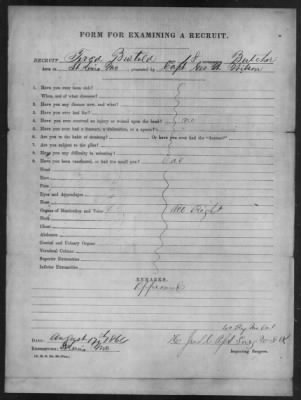 FORM FOR EXAMINING A RECRUIT.
RECRUIT Fred 18 Butcher
Born in St Louis Mo presented by Capt Geo Wilson
1. Have you ever been sick?
When, and of what diseases?
2. Have you any disease now, and what?
3. Have you ever had fits?
4. Have you ever received an injury or wound upon the head? no
5. Have you ever had a fracture, a dislocation, or a sprain?
6. Are you in the habit of drinking? Or have you ever had the "horrors?"
7. Are you subject to the piles?
8. Have you any difficulty in urinating?
9. Have you been vaccinated, or had the small pox?
Head
Ears
Face
Eyes and Appendages
Nose
Organs of Mastication and Voice All Right
Neck
Chest
Abdomen
Genital and Urinary Organs
Vertebral Column
Superior Extremities
Inferior Extremities
REMARKS.
Approved
DATE: August 17th 186
RENDEZVOUS: St Louis Mo
Judd Surg
Inspecting Surgeon.